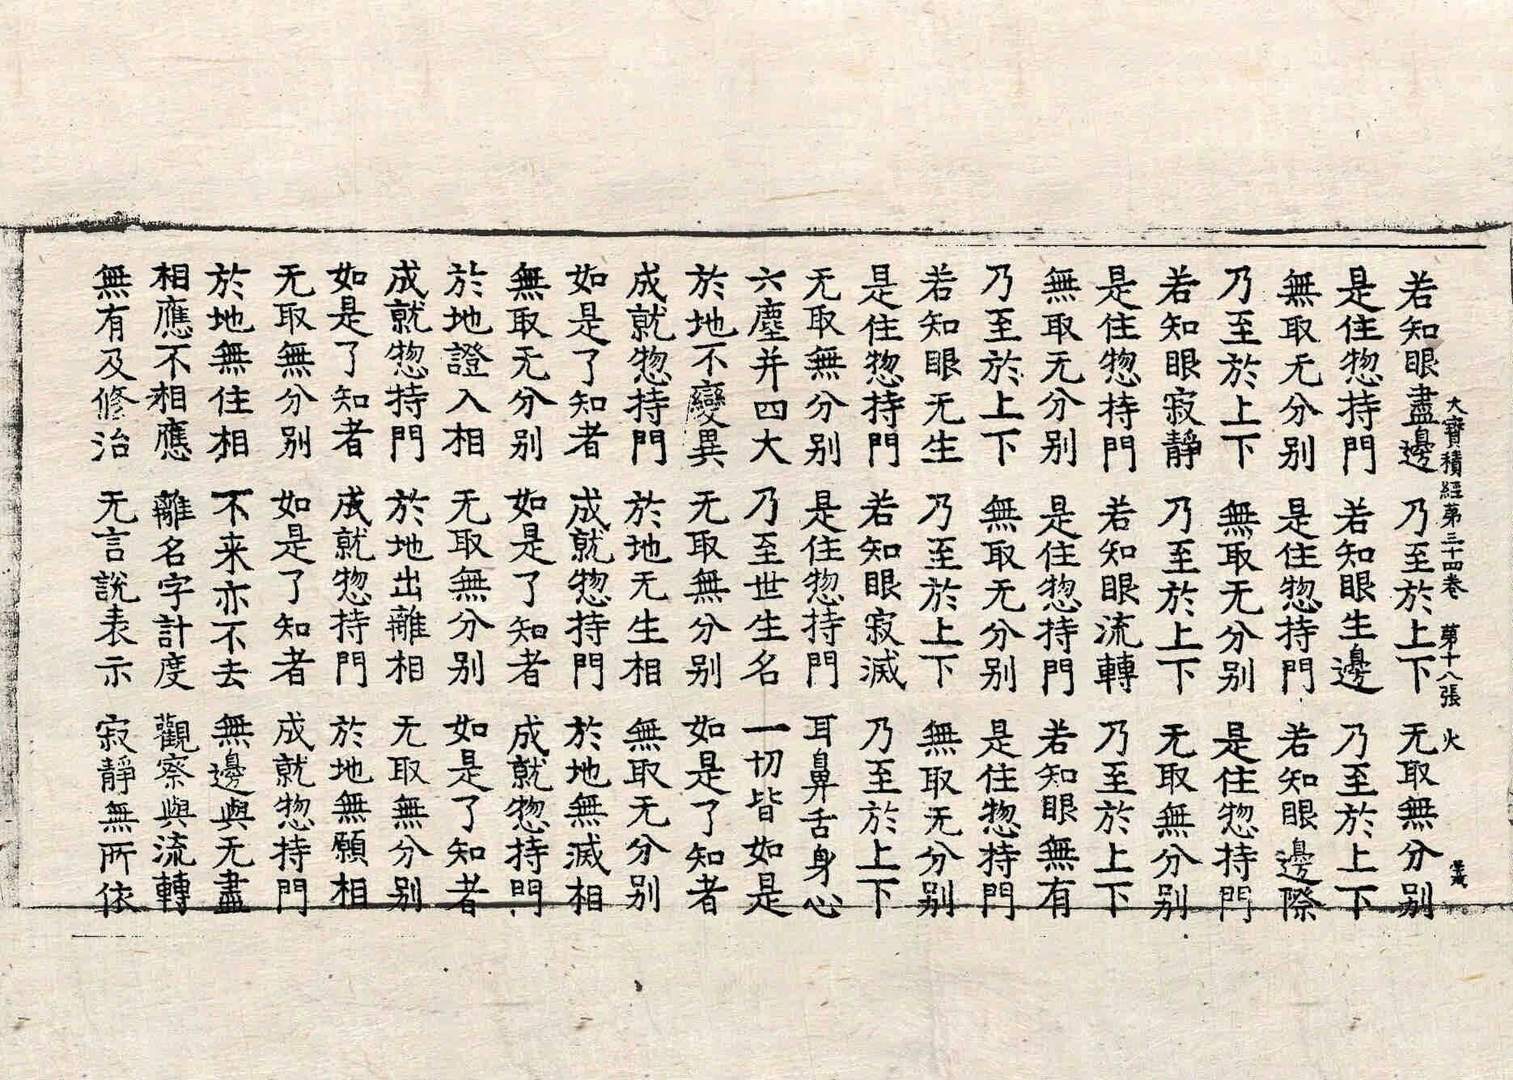 大寶積經第三十四卷 第十八張 火
若知眼盡邊 乃至於上下 无取無分别
是住惣持門 若知眼生邊 乃至於上下
無取无分别 是住惣持門 若知眼邊際
乃至於上下 無取无分别 是住惣持門
若知眼寂靜 乃至於上下 无取無分别
是住惣持門 若知眼流轉 乃至於上下
無取无分别 是住惣持門 若知眼無有
乃至於上下 無取无分别 是住惣持門
若知眼无生 乃至於上下 無取无分别
是住惣持門 若知眼寂滅 乃至於上下
无取無分别 是住惣持門 耳鼻舌身心
六塵并四大 乃至世生名 一切皆如是
於地不變異 无取無分别 如是了知者
成就惣持門 於地无生相 無取无分别
如是了知者 成就惣持門 於地無滅相
無取无分别 如是了知者 成就惣持門
於地證入相 无取無分别 如是了知者
成就惣持門 於地出離相 无取無分别
如是了知者 成就惣持門 於地無願相
无取無分别 如是了知者 成就惣持門
於地無住相 不来亦不去 無邊與无盡
相應不相應 離名字計度 觀察與流轉
無有及修治 无言說表示 寂靜無所依